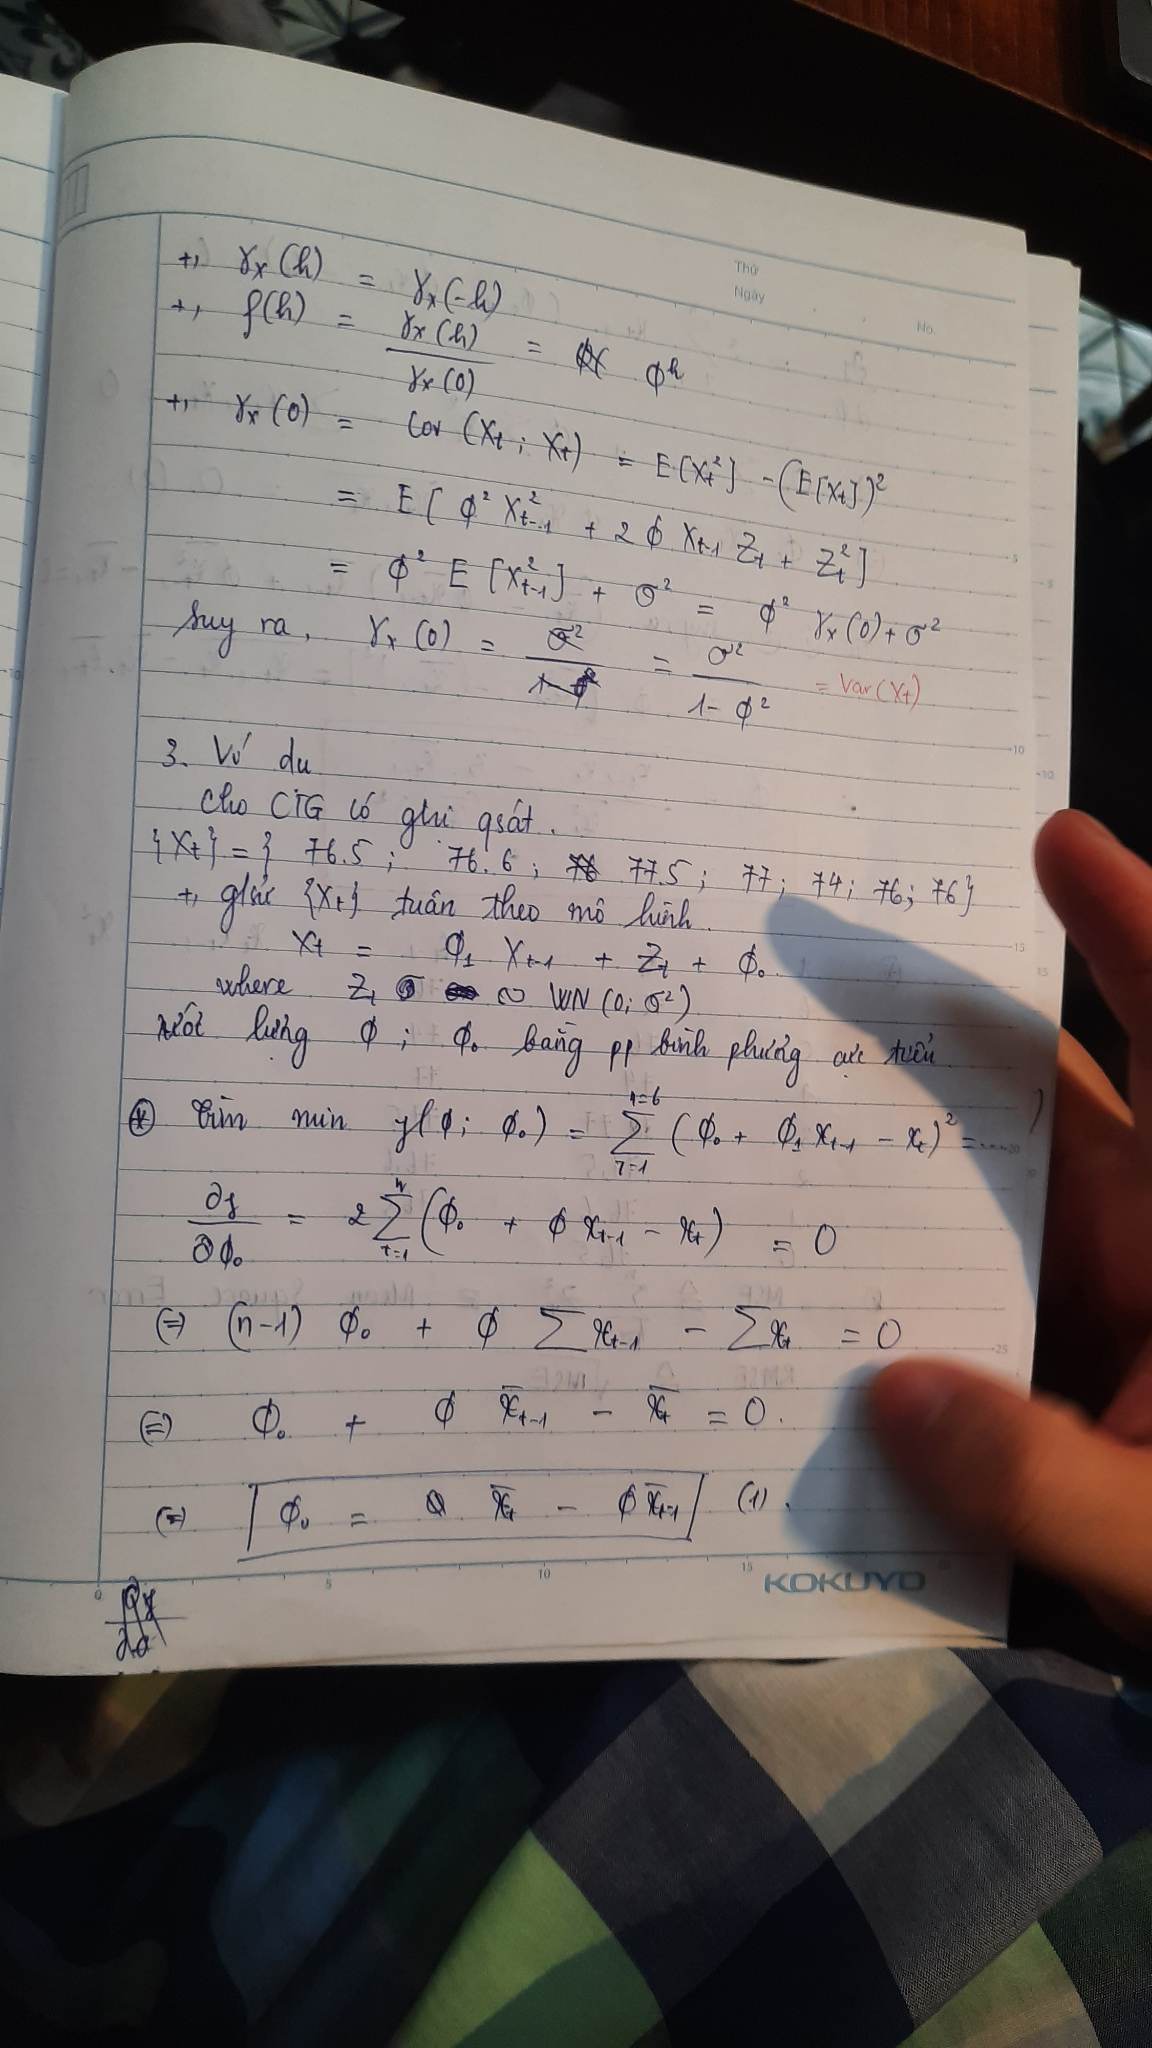 Thứ
Ngày
No.
+, γx(h) = γx(-h)
+, ρ(h) = γx(h) / γx(0) = ϕ^h
+, γx(0) = Cov(Xt ; Xt) = E[Xt²] - (E[Xt])²
= E[ϕ² X²t-1 + 2ϕ Xt-1 Zt + Zt²]
= ϕ² E[X²t-1] + σ² = ϕ² γx(0) + σ²
Suy ra, γx(0) = σ² / = σ² / 1-ϕ² = Var(Xt)
3. Ví dụ
Cho CTG có ghi qsát.
{Xt} = { 76.5 ; 76.6 ; 77.5 ; 77 ; 74 ; 76 ; 76}
+, giả sử {Xt} tuân theo mô hình
Xt = ϕ1 Xt-1 + Zt + ϕ0
where Zt ~ WN(0; σ²)
ước lượng ϕ ; ϕ0 bằng pp bình phương cực tiểu
* Tìm min y(ϕ; ϕ0) = Σ (ϕ0 + ϕ1 xt-1 - xt)² = ....
∂y/∂ϕ0 = 2 Σ (ϕ0 + ϕ xt-1 - xt) = 0
(=) (n-1) ϕ0 + ϕ Σ xt-1 - Σ xt = 0
(=) ϕ0 + ϕ x̄t-1 - x̄t = 0.
(=) ϕ0 = x̄t - ϕ x̄t-1 (1).
KOKUYO